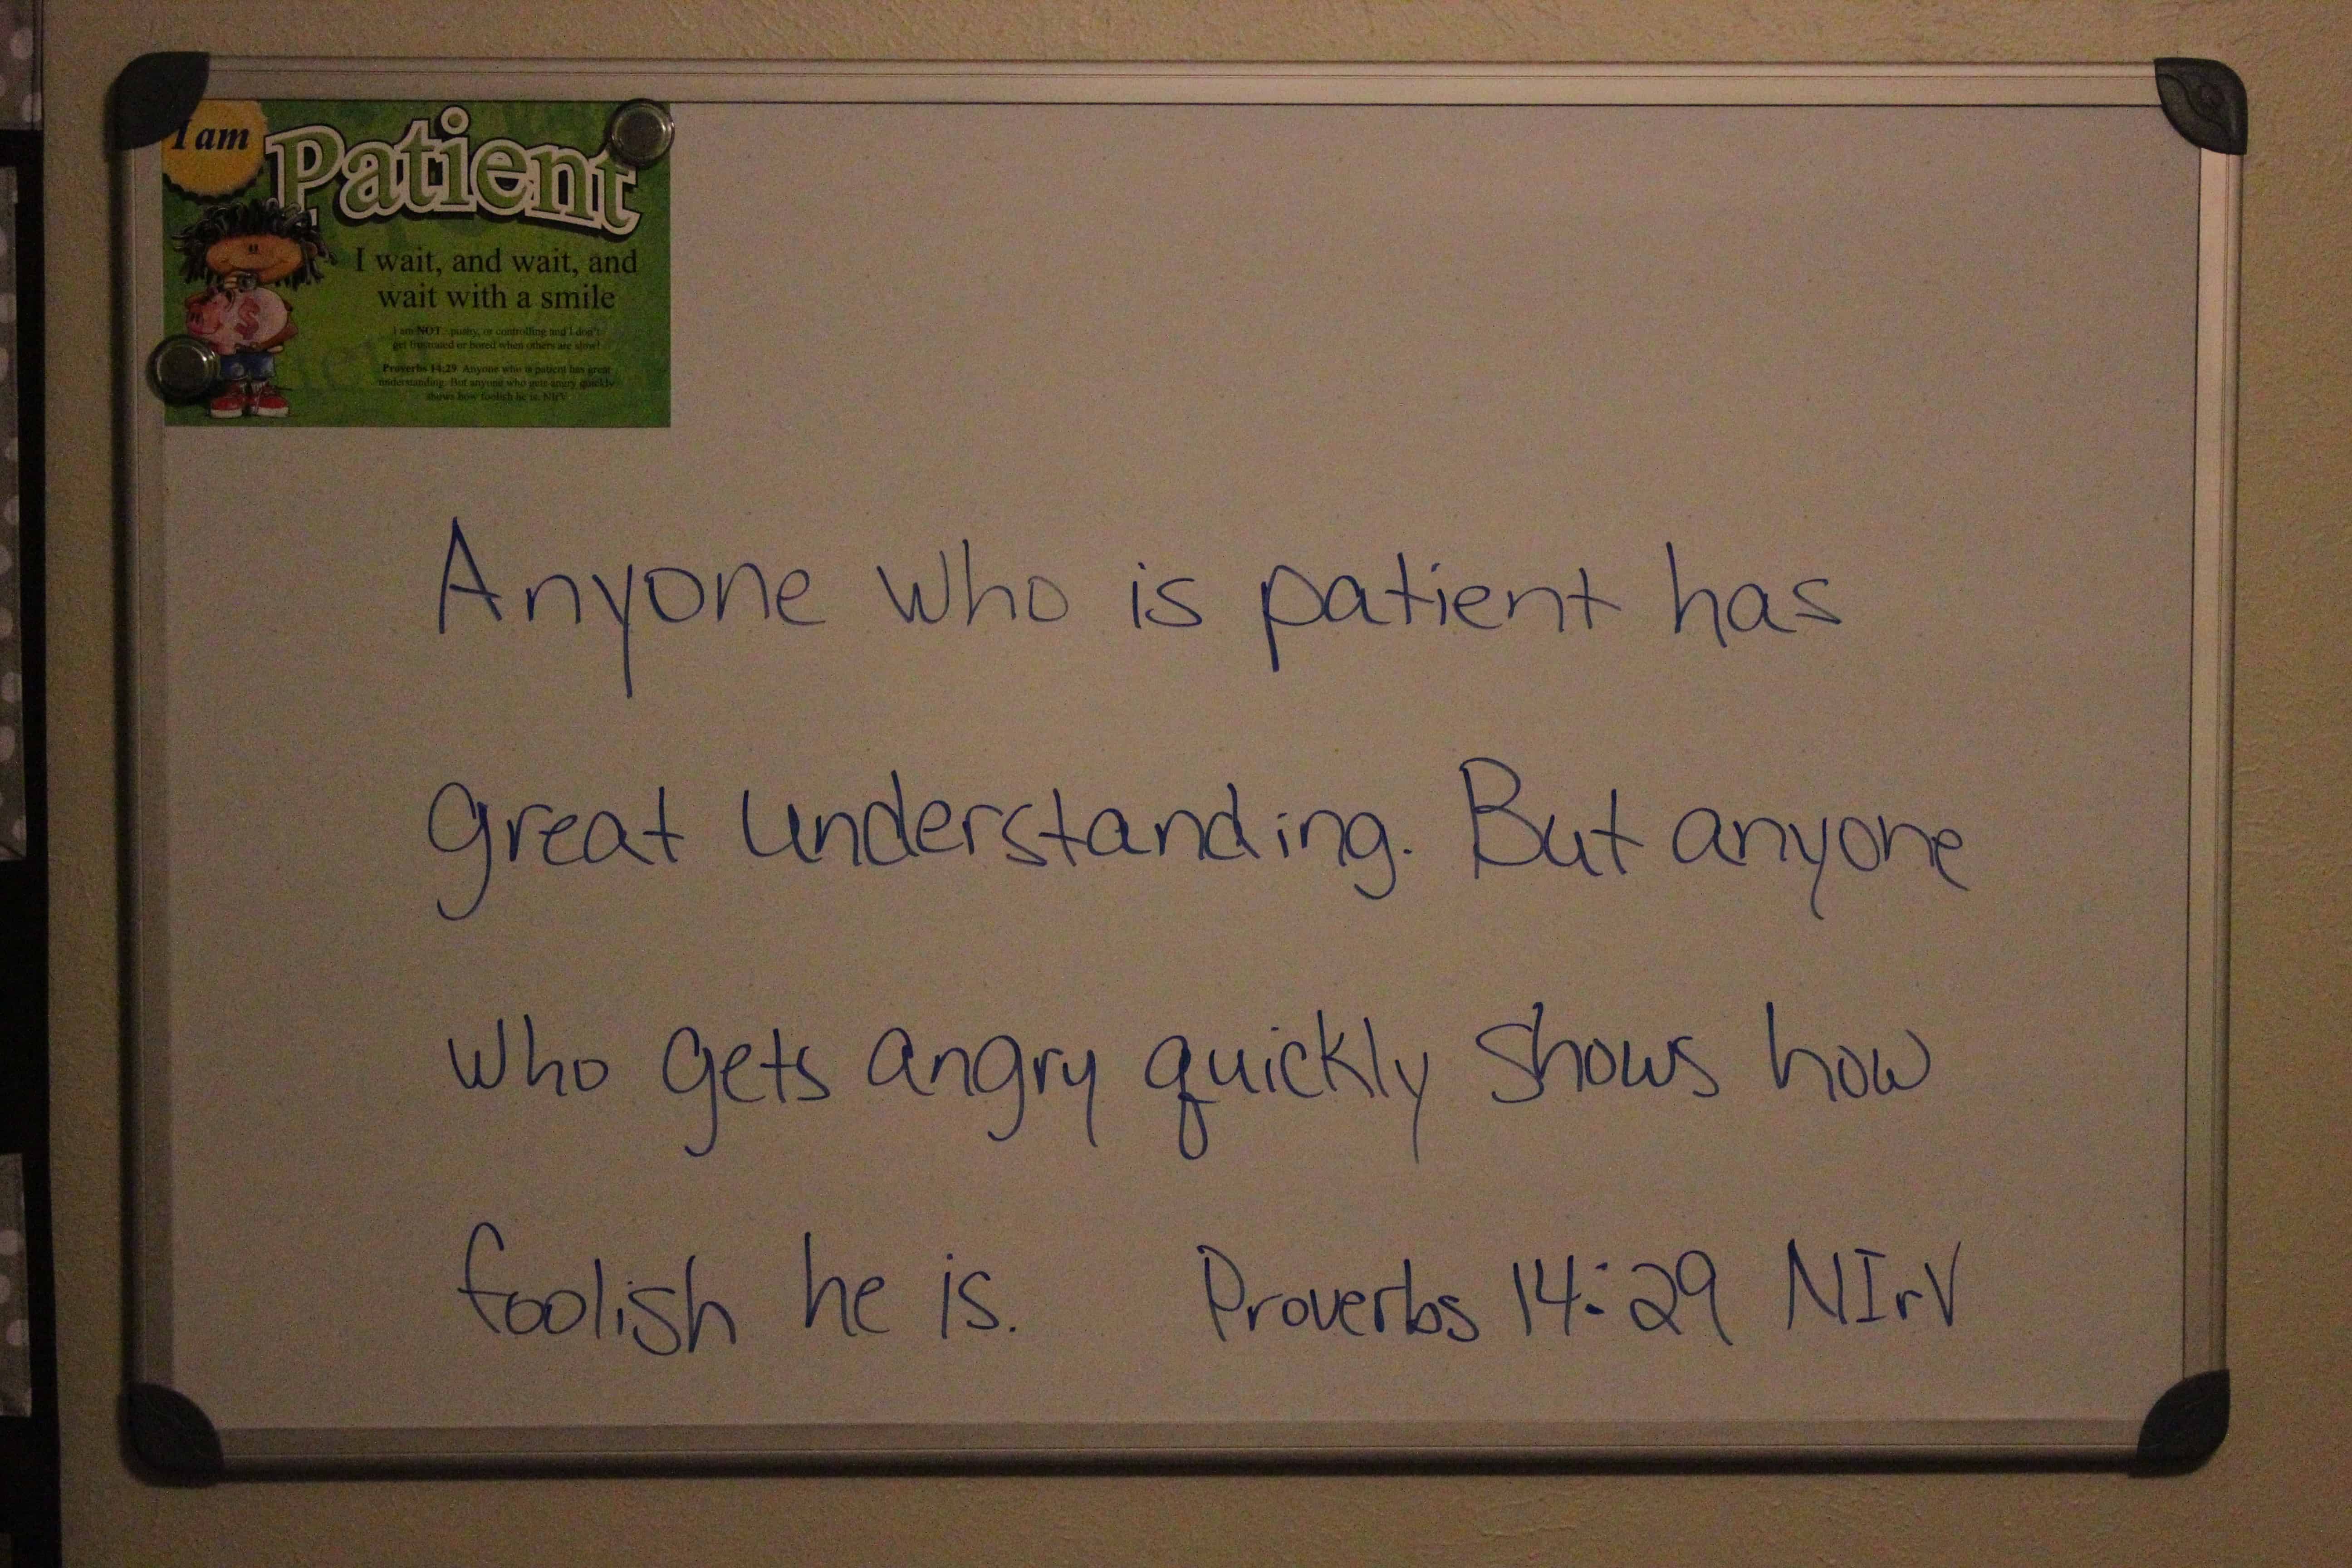 I am
Patient
I wait, and wait, and
wait with a smile
I am NOT pushy, or controlling and I don't
get frustrated or bored when others are slow!
Proverbs 14:29 Anyone who is patient has great
understanding. But anyone who gets angry quickly
shows how foolish he is. NIrV
Anyone who is patient has
great understanding. But anyone
who gets angry quickly shows how
foolish he is. Proverbs 14:29 NIrV